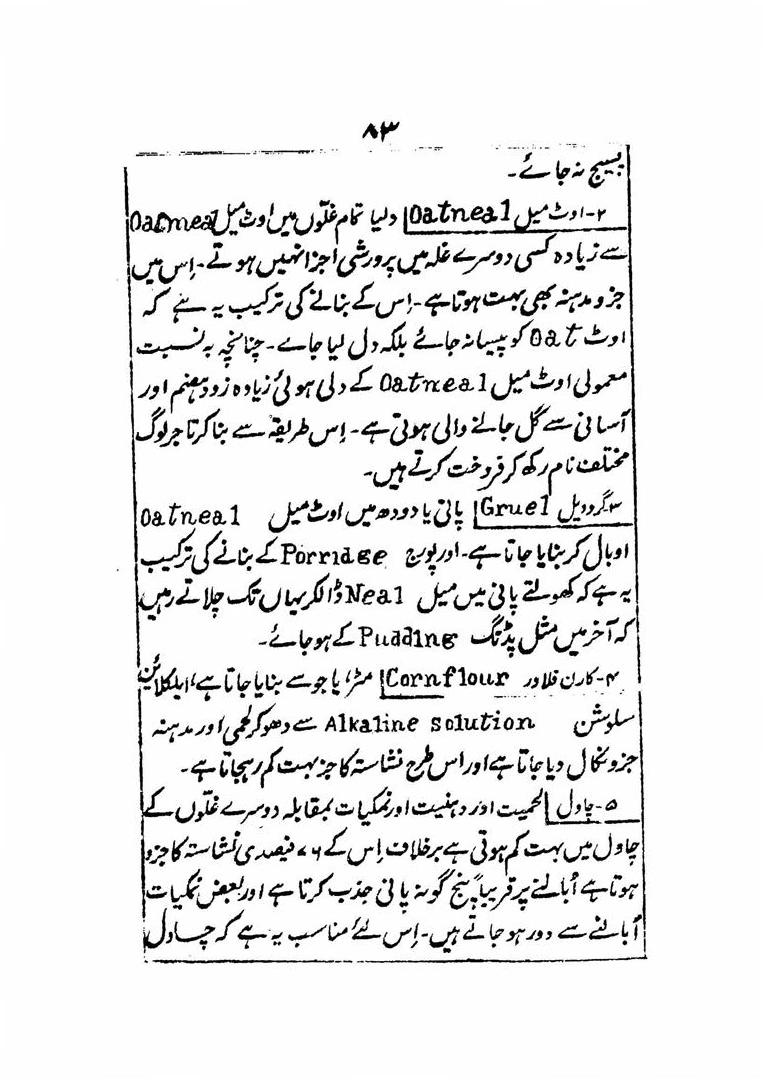 ۸۳
پسیج نہ جائے۔
۲- اوٹ میل Oatneal دلیا تمام غلّوں میں اوٹ میل Oatmeal
سے زیادہ کسی دوسرے غلہ میں پرورشی اجزا نہیں ہوتے۔ اِس میں
جزو مدہنہ بھی بہت ہوتا ہے۔ اِس کے بنانے کی ترکیب یہ ہے کہ
اوٹ Oat کو پیسا نہ جائے بلکہ دل لیا جاے۔ چنانچہ بہ نسبت
معمولی اوٹ میل Oatneal کے دلی ہوئی زیادہ زود ہضم اور
آسانی سے گل جانے والی ہوتی ہے۔ اِس طریقہ سے بنا کرتا جر لوگ
مختلف نام رکھ کر فروخت کرتے ہیں۔
۳- گرویل Gruel پانی یا دودھ میں اوٹ میل Oatneal
اوبال کر بنایا جاتا ہے۔ اور پورج Porridge کے بنانے کی ترکیب
یہ ہے کہ کھولتے پانی میں میل Neal ڈالکر یہاں تک چلاتے رہیں
کہ آخر میں مثل پڈنگ Pudding کے ہو جائے۔
۴- کارن فلاور Cornflour مٹر، یا جو سے بنایا جاتا ہے، ایلکلائین
سلوشن Alkaline solution سے دھو کر لحمی اور مدہنہ
جزو نکال دیا جاتا ہے اور اس طرح نشاستہ کا جز بہت کم رہجاتا ہے۔
۵- چاول لحمیت اور دہنیت اور نمکیات بمقابلہ دوسرے غلّوں کے
چاول میں بہت کم ہوتی ہے برخلاف اِس کے ۷۶ فیصدی نشاستہ کا جزو
ہوتا ہے اُبالنے پر قریباً پنج گونہ پانی جذب کرتا ہے اور بعض نمکیات
اُبالنے سے دور ہو جاتے ہیں۔ اِس لئے مناسب یہ ہے کہ چاول